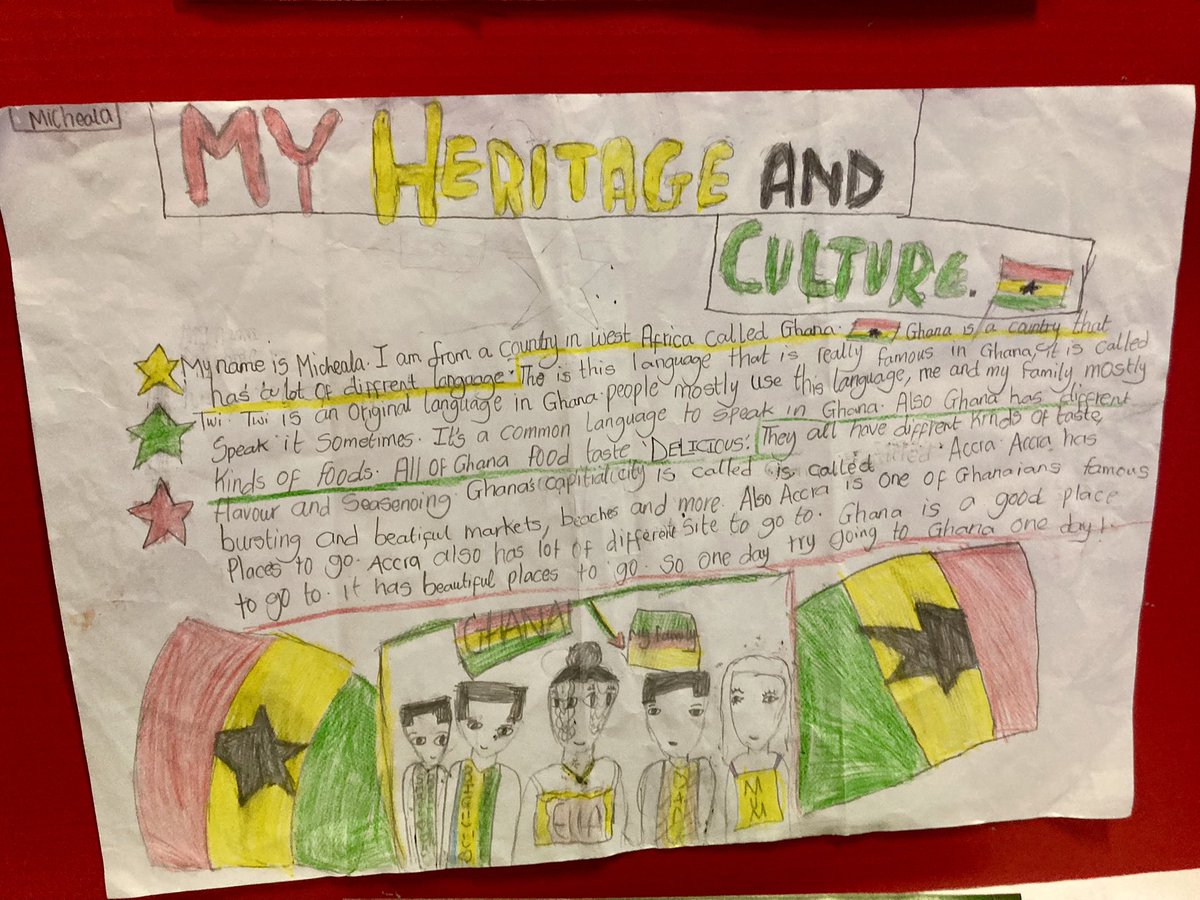 Micheala
MY HERITAGE AND
CULTURE.
My name is Micheala. I am from a country in west Africa called Ghana. Ghana is a country that
has a lot of diffrent langaage. The is this language that is really famous in Ghana, it is called
Twi. Twi is an original language in Ghana. people mostly use this language, me and my family mostly
speak it sometimes. It's a common language to speak in Ghana. Also Ghana has different
kinds of foods. All of Ghana food taste DELICIOUS. They all have diffrent kinds of taste,
flavour and seasenoing. Ghana's capitial city is called is called Accra. Accra has
bursting and beatiful markets, beaches and more. Also Accra is one of Ghanaians famous
places to go. Accra also has lot of different site to go to. Ghana is a good place
to go to. it has beautiful places to go. So one day try going to Ghana one day!.
GHANA
Ghana
ELLA
DAD
MM